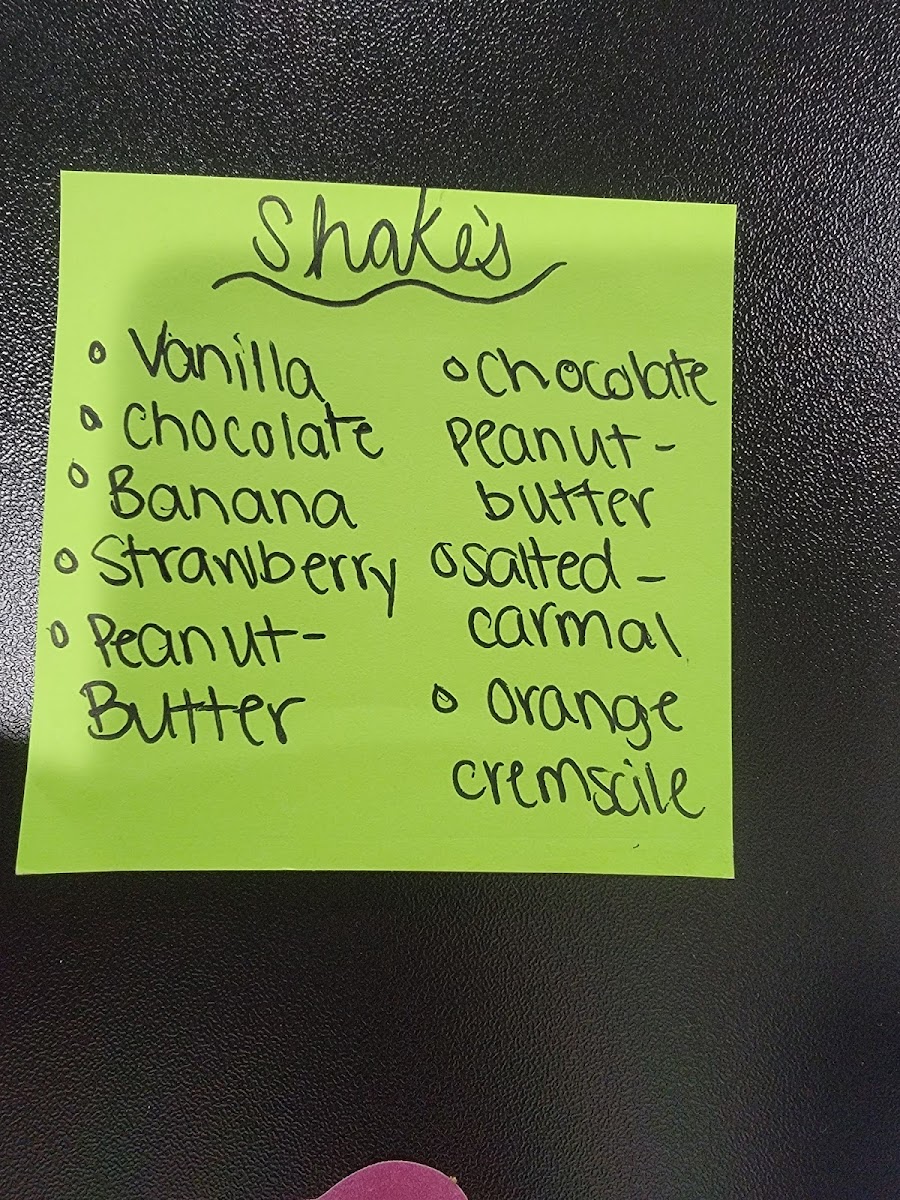 Shake's
Vanilla
Chocolate
Banana
Strawberry
Peanut-
Butter
Chocolate
Peanut-
butter
salted-
carmal
orange
cremscile